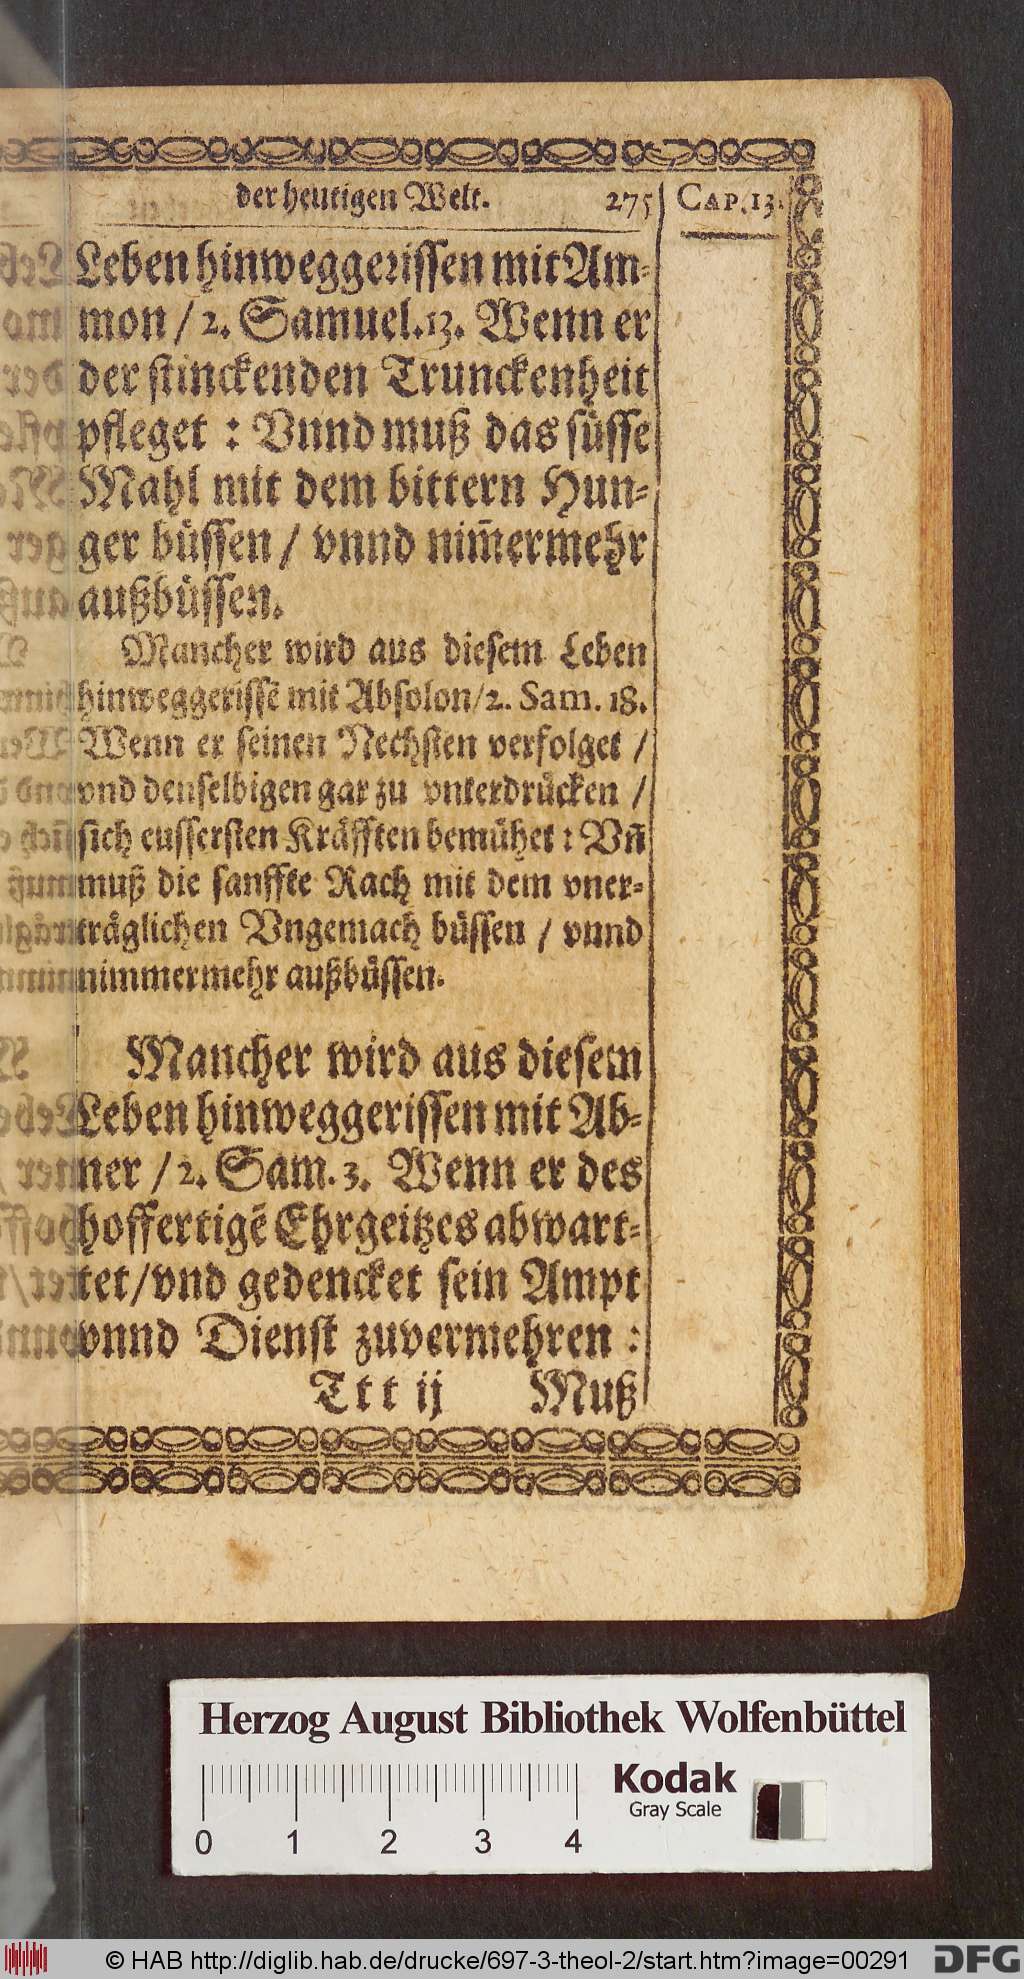 der heutigen Welt. 275 CAP. 13.
Leben hinweggerissen mit Am-
mon / 2. Samuel. 13. Wenn er
der stinckenden Trunckenheit
pfleget : Vnnd muß das süsse
Mahl mit dem bittern Hun-
ger büssen / vnnd nim̃ermehr
außbüssen.
Mancher wird aus diesem Leben
hinweggerissẽ mit Absolon / 2. Sam. 18.
Wenn er seinen Nechsten verfolget /
vnd denselbigen gar zu vnterdrücken /
sich eussersten Kräfften bemühet : Vñ
muß die sanffte Rach mit dem vner-
träglichen Vngemach büssen / vnnd
nimmermehr außbüssen.
Mancher wird aus diesem
Leben hinweggerissen mit Ab-
ner / 2. Sam. 3. Wenn er des
hoffertigẽ Ehrgeitzes abwart-
tet / vnd gedencket sein Ampt
vnnd Dienst zuvermehren :
Ttt ij Muß
Herzog August Bibliothek Wolfenbüttel
Kodak
Gray Scale
0 1 2 3 4
© HAB http://diglib.hab.de/drucke/697-3-theol-2/start.htm?image=00291
DFG